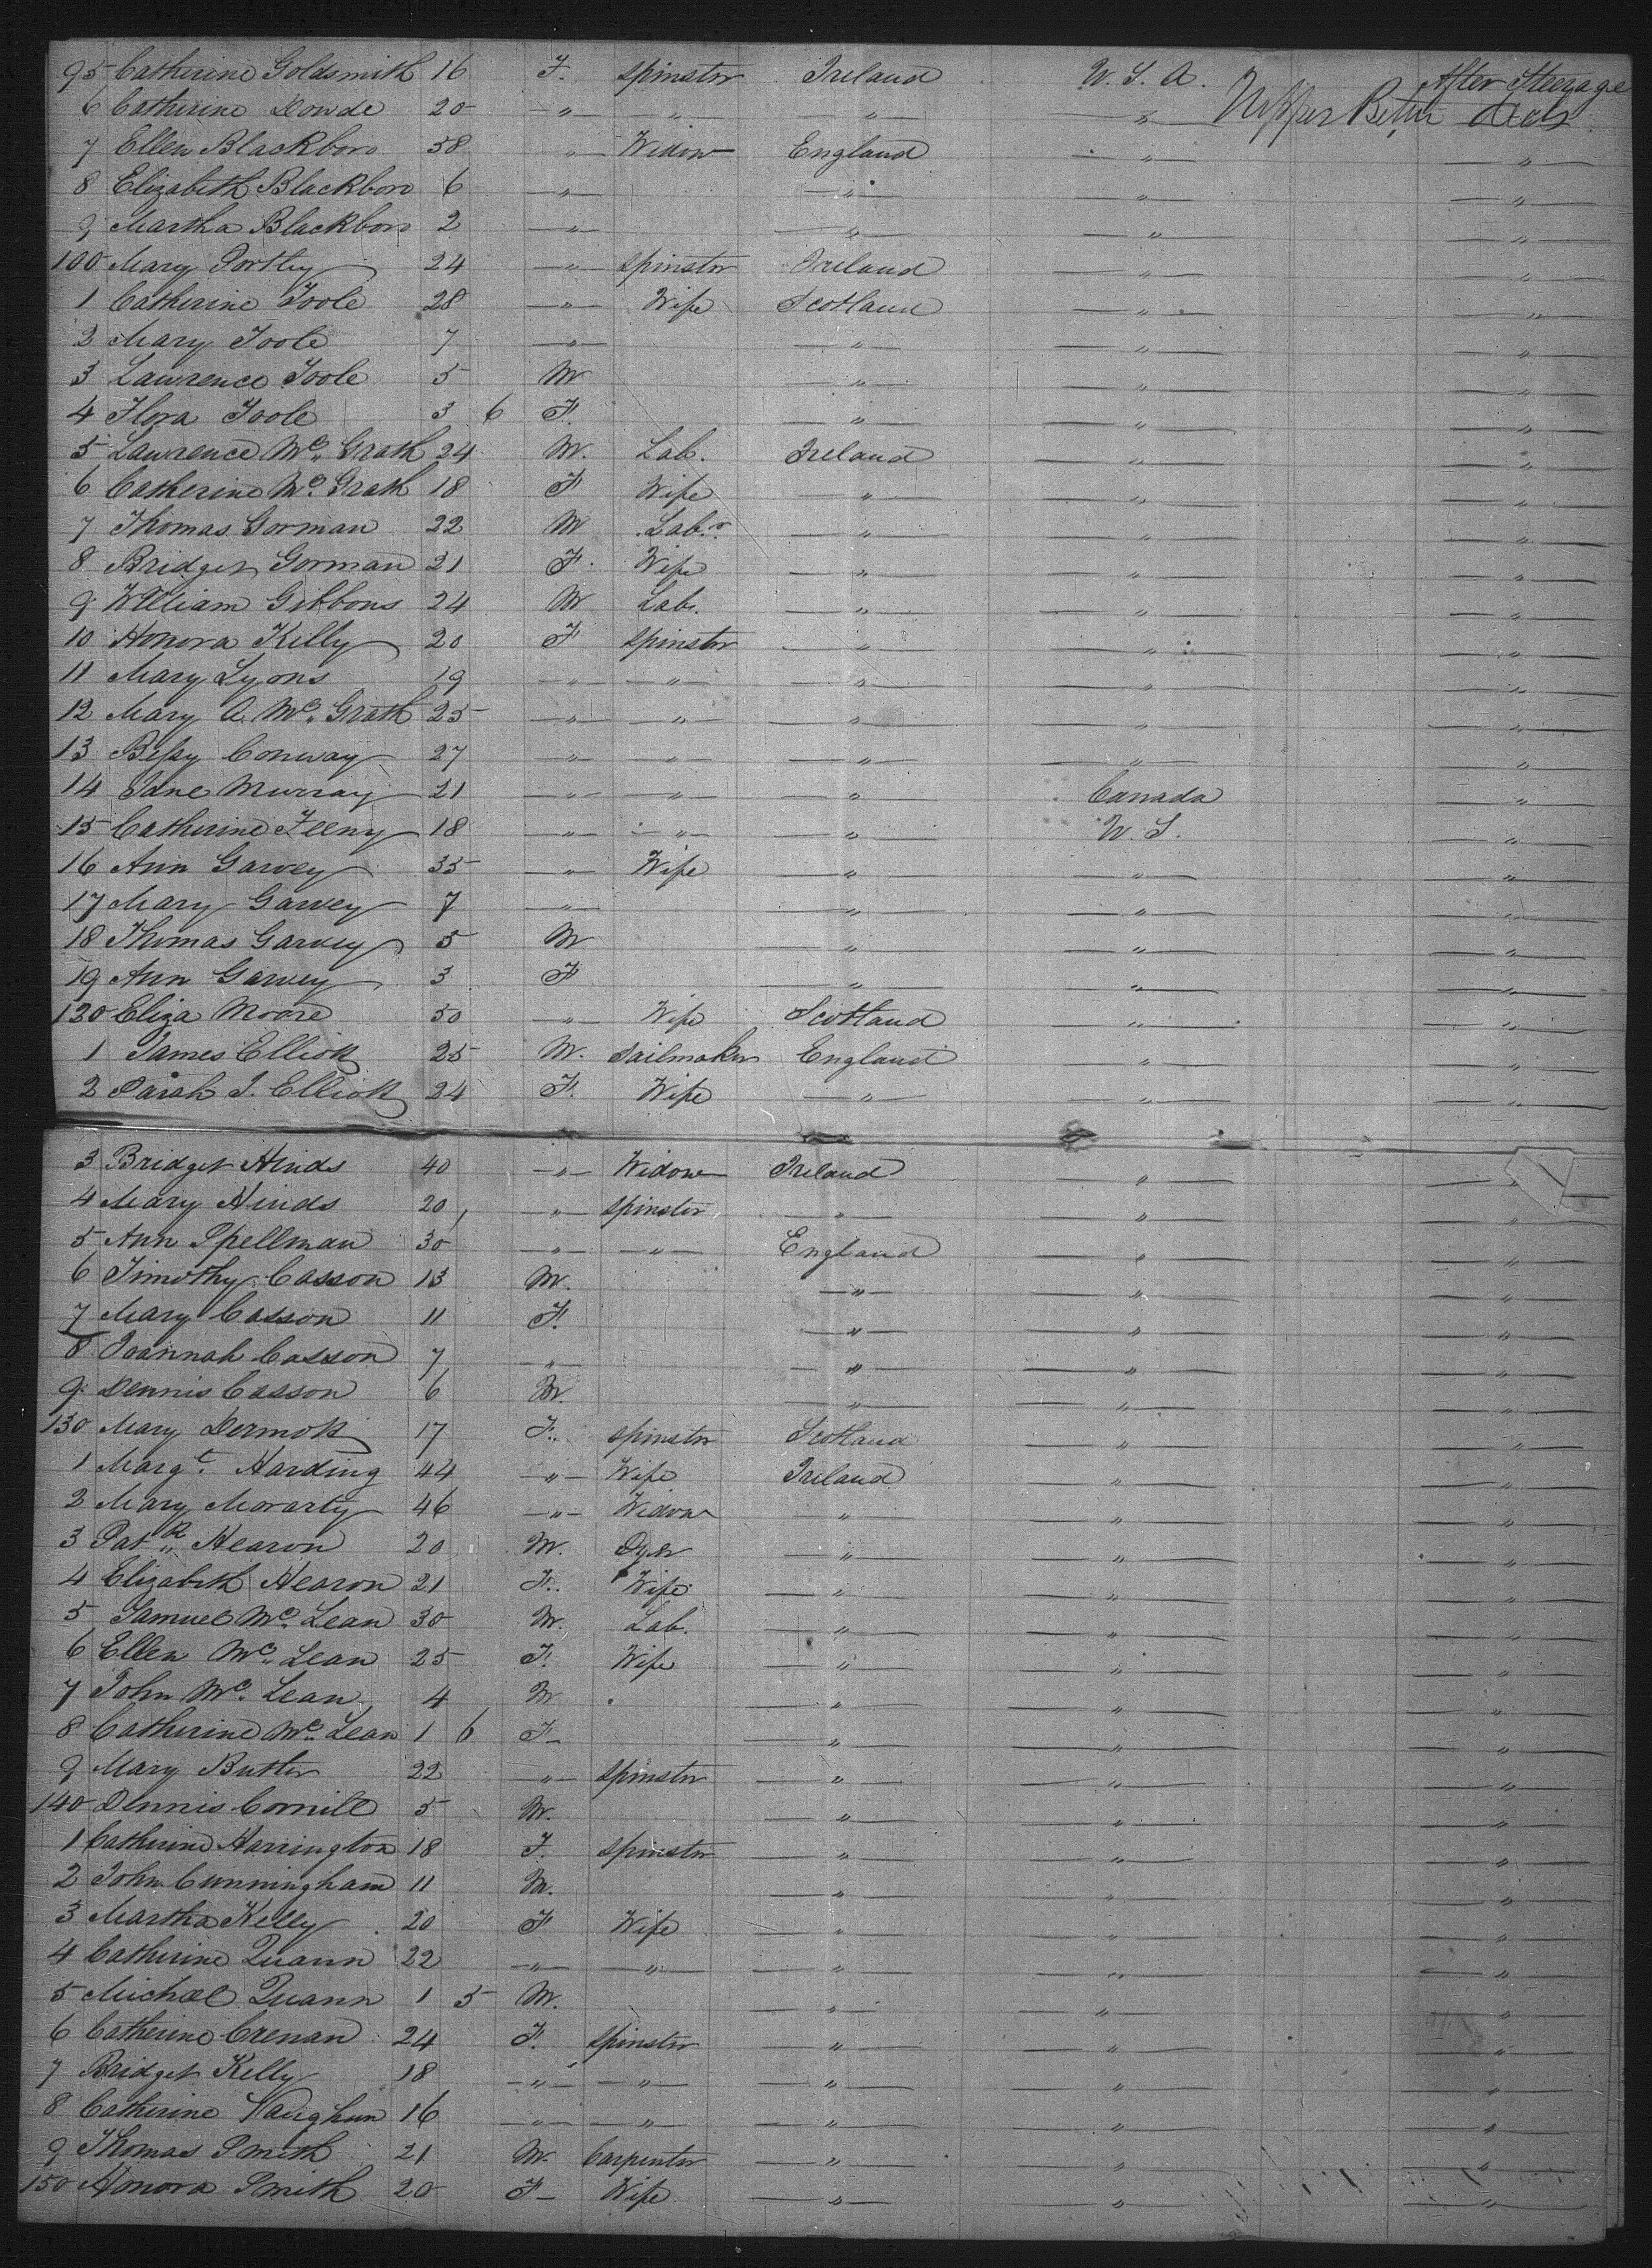 95 Catherine Goldsmith 16 F. Spinstr Ireland U. S. A. After Steerage
6 Catherine Dowde 20 " " " " Upper Betw Decks
7 Ellen Blackboro 58 " Widow England " "
8 Elizabeth Blackboro 6 " " " "
9 Martha Blackboro 2 " " " "
100 Mary Portley 24 " Spinstr Ireland " "
1 Catherine Toole 28 " Wife Scotland " "
2 Mary Toole 7 " " " "
3 Lawrence Toole 5 M " " "
4 Flora Toole 3 6 F. " " "
5 Lawrence Mc Grath 24 M. Lab. Ireland " "
6 Catherine Mc Grath 18 F Wife " " "
7 Thomas Gorman 22 M Labr. " " "
8 Bridget Gorman 21 F. Wife " " "
9 William Gibbons 24 M Lab. " " "
10 Honora Kelly 20 F Spinstr " " "
11 Mary Lyons 19 " " " " "
12 Mary A. Mc Grath 25 " " " " "
13 Bessy Conway 27 " " " " "
14 Jane Murray 21 " " " Canada "
15 Catherine Feeny 18 " " " U. S. "
16 Ann Garvey 35 " Wife " " "
17 Mary Garvey 7 " " " "
18 Thomas Garvey 5 M " " "
19 Ann Garvey 3 F " " "
120 Eliza Moore 50 " Wife Scotland " "
1 James Elliott 25 M. Sailmaker England " "
2 Sarah J. Elliott 24 F. Wife " " "
3 Bridget Hinds 40 " Widow Ireland " "
4 Mary Hinds 20 " Spinstr " " "
5 Ann Spellman 30 " " England " "
6 Timothy Casson 13 M. " " "
7 Mary Casson 11 F. " " "
8 Joannah Casson 7 " " " "
9 Dennis Casson 6 M. " " "
130 Mary Dermott 17 F. Spinstr Scotland " "
1 Margt. Harding 44 " Wife Ireland " "
2 Mary Morarty 46 " Widow " " "
3 Patk Hearon 20 M. Dyer " " "
4 Elizabeth Hearon 21 F. Wife " " "
5 Samuel Mc Lean 30 M. Lab. " " "
6 Ellen Mc Lean 25 F. Wife " " "
7 John Mc Lean 4 M " " "
8 Catherine Mc Lean 1 6 F " " "
9 Mary Butler 22 " Spinstr " " "
140 Dennis Cornill 5 M. " " "
1 Catherine Harrington 18 F. Spinstr " " "
2 John Cunningham 11 M. " " "
3 Martha Kelly 20 F Wife " " "
4 Catherine Quann 22 " " " " "
5 Michael Quann 1 5 M. " " "
6 Catherine Crenan 24 F. Spinstr " " "
7 Bridget Kelly 18 " " " " "
8 Catherine Vaughun 16 " " " " "
9 Thomas Smith 21 M. Carpenter " " "
150 Honora Smith 20 F Wife " " "